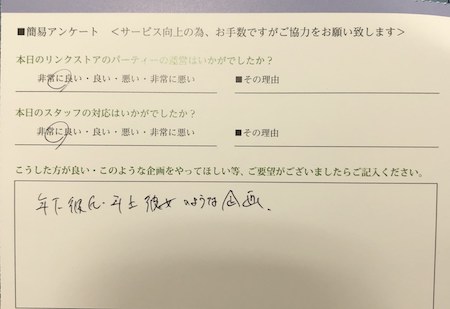 ■簡易アンケート　＜サービス向上の為、お手数ですがご協力をお願い致します＞
本日のリンクストアのパーティーの運営はいかがでしたか？
非常に良い・良い・悪い・非常に悪い　■その理由
本日のスタッフの対応はいかがでしたか？
非常に良い・良い・悪い・非常に悪い　■その理由
こうした方が良い・このような企画をやってほしい等、ご要望がございましたらご記入ください。
年下彼氏・年上彼女のような企画、